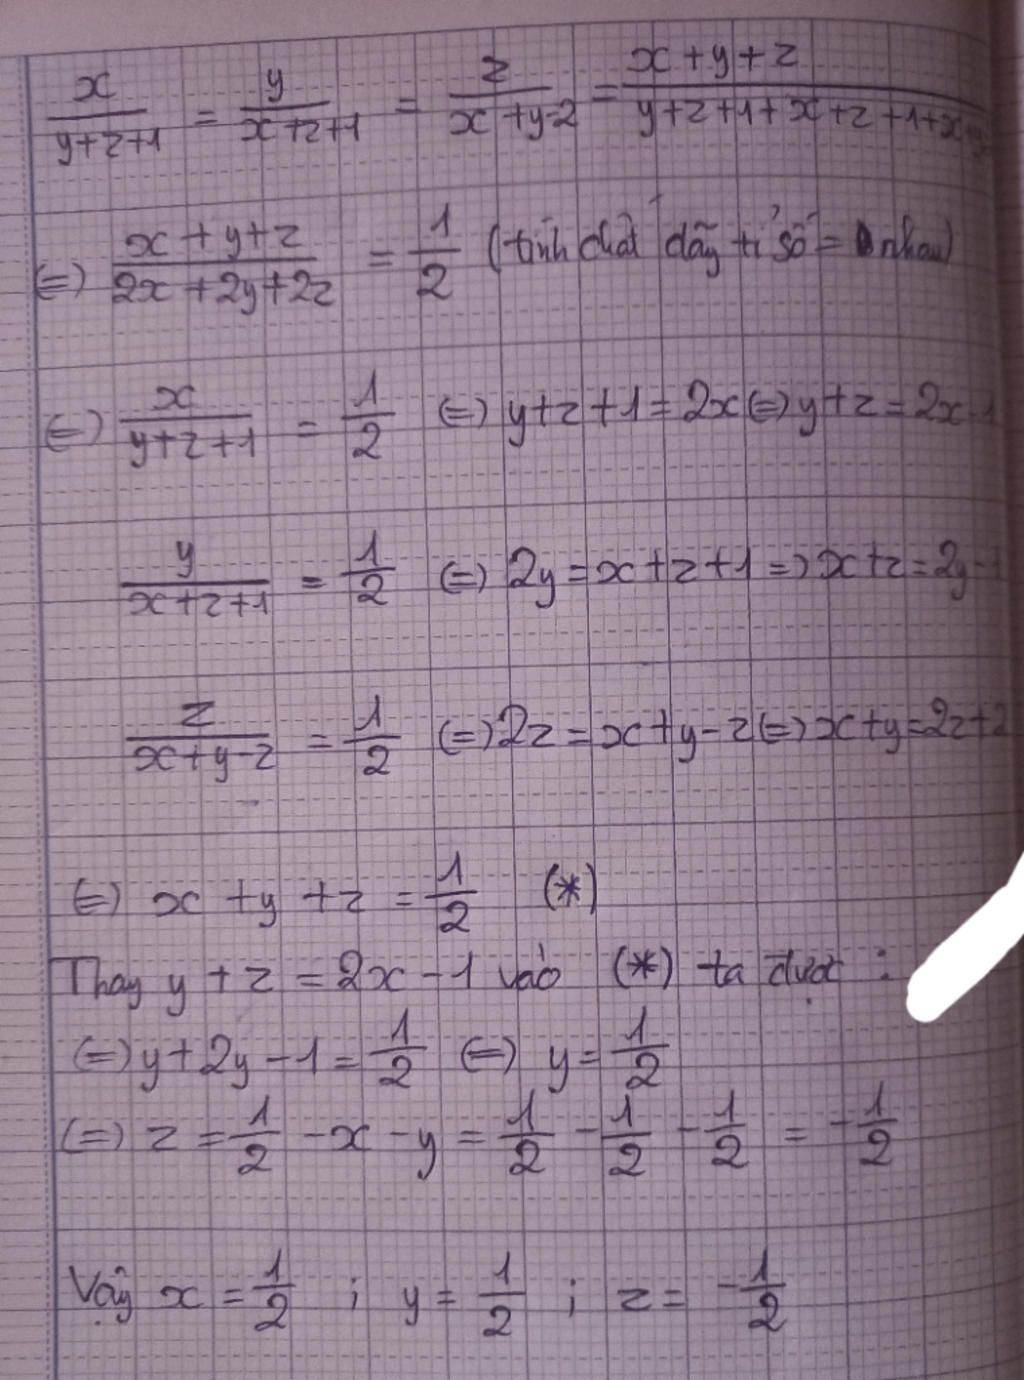 x/(y+z+1) = y/(x+z+1) = z/(x+y-2) = (x+y+z)/(y+z+1+x+z+1+x+y
(=) (x+y+z)/(2x+2y+2z) = 1/2 (tính chất dãy tỉ số = nhau)
(=) x/(y+z+1) = 1/2 (=) y+z+1=2x (=) y+z=2x-1
y/(x+z+1) = 1/2 (=) 2y=x+z+1 =) x+z=2y-1
z/(x+y-z) = 1/2 (=) 2z=x+y-z (=) x+y=2z+2
(=) x+y+z = 1/2 (*)
Thay y+z=2x-1 vào (*) ta được :
(=) y+2y-1=1/2 (=) y=1/2
(=) z=1/2-x-y=1/2-1/2-1/2=-1/2
Vậy x=1/2 ; y=1/2 ; z=-1/2